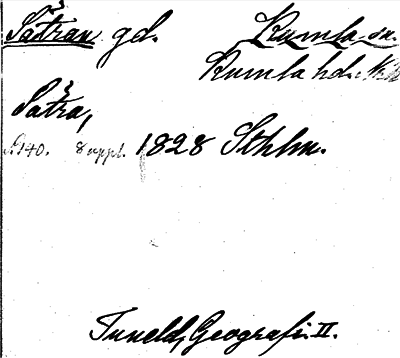 Såtran gd. Kumla sn.
Kumla hd.
Såtra,
S. 140. 8 uppl. 1828 Sthlm.
Tuneld, Geografi. II.